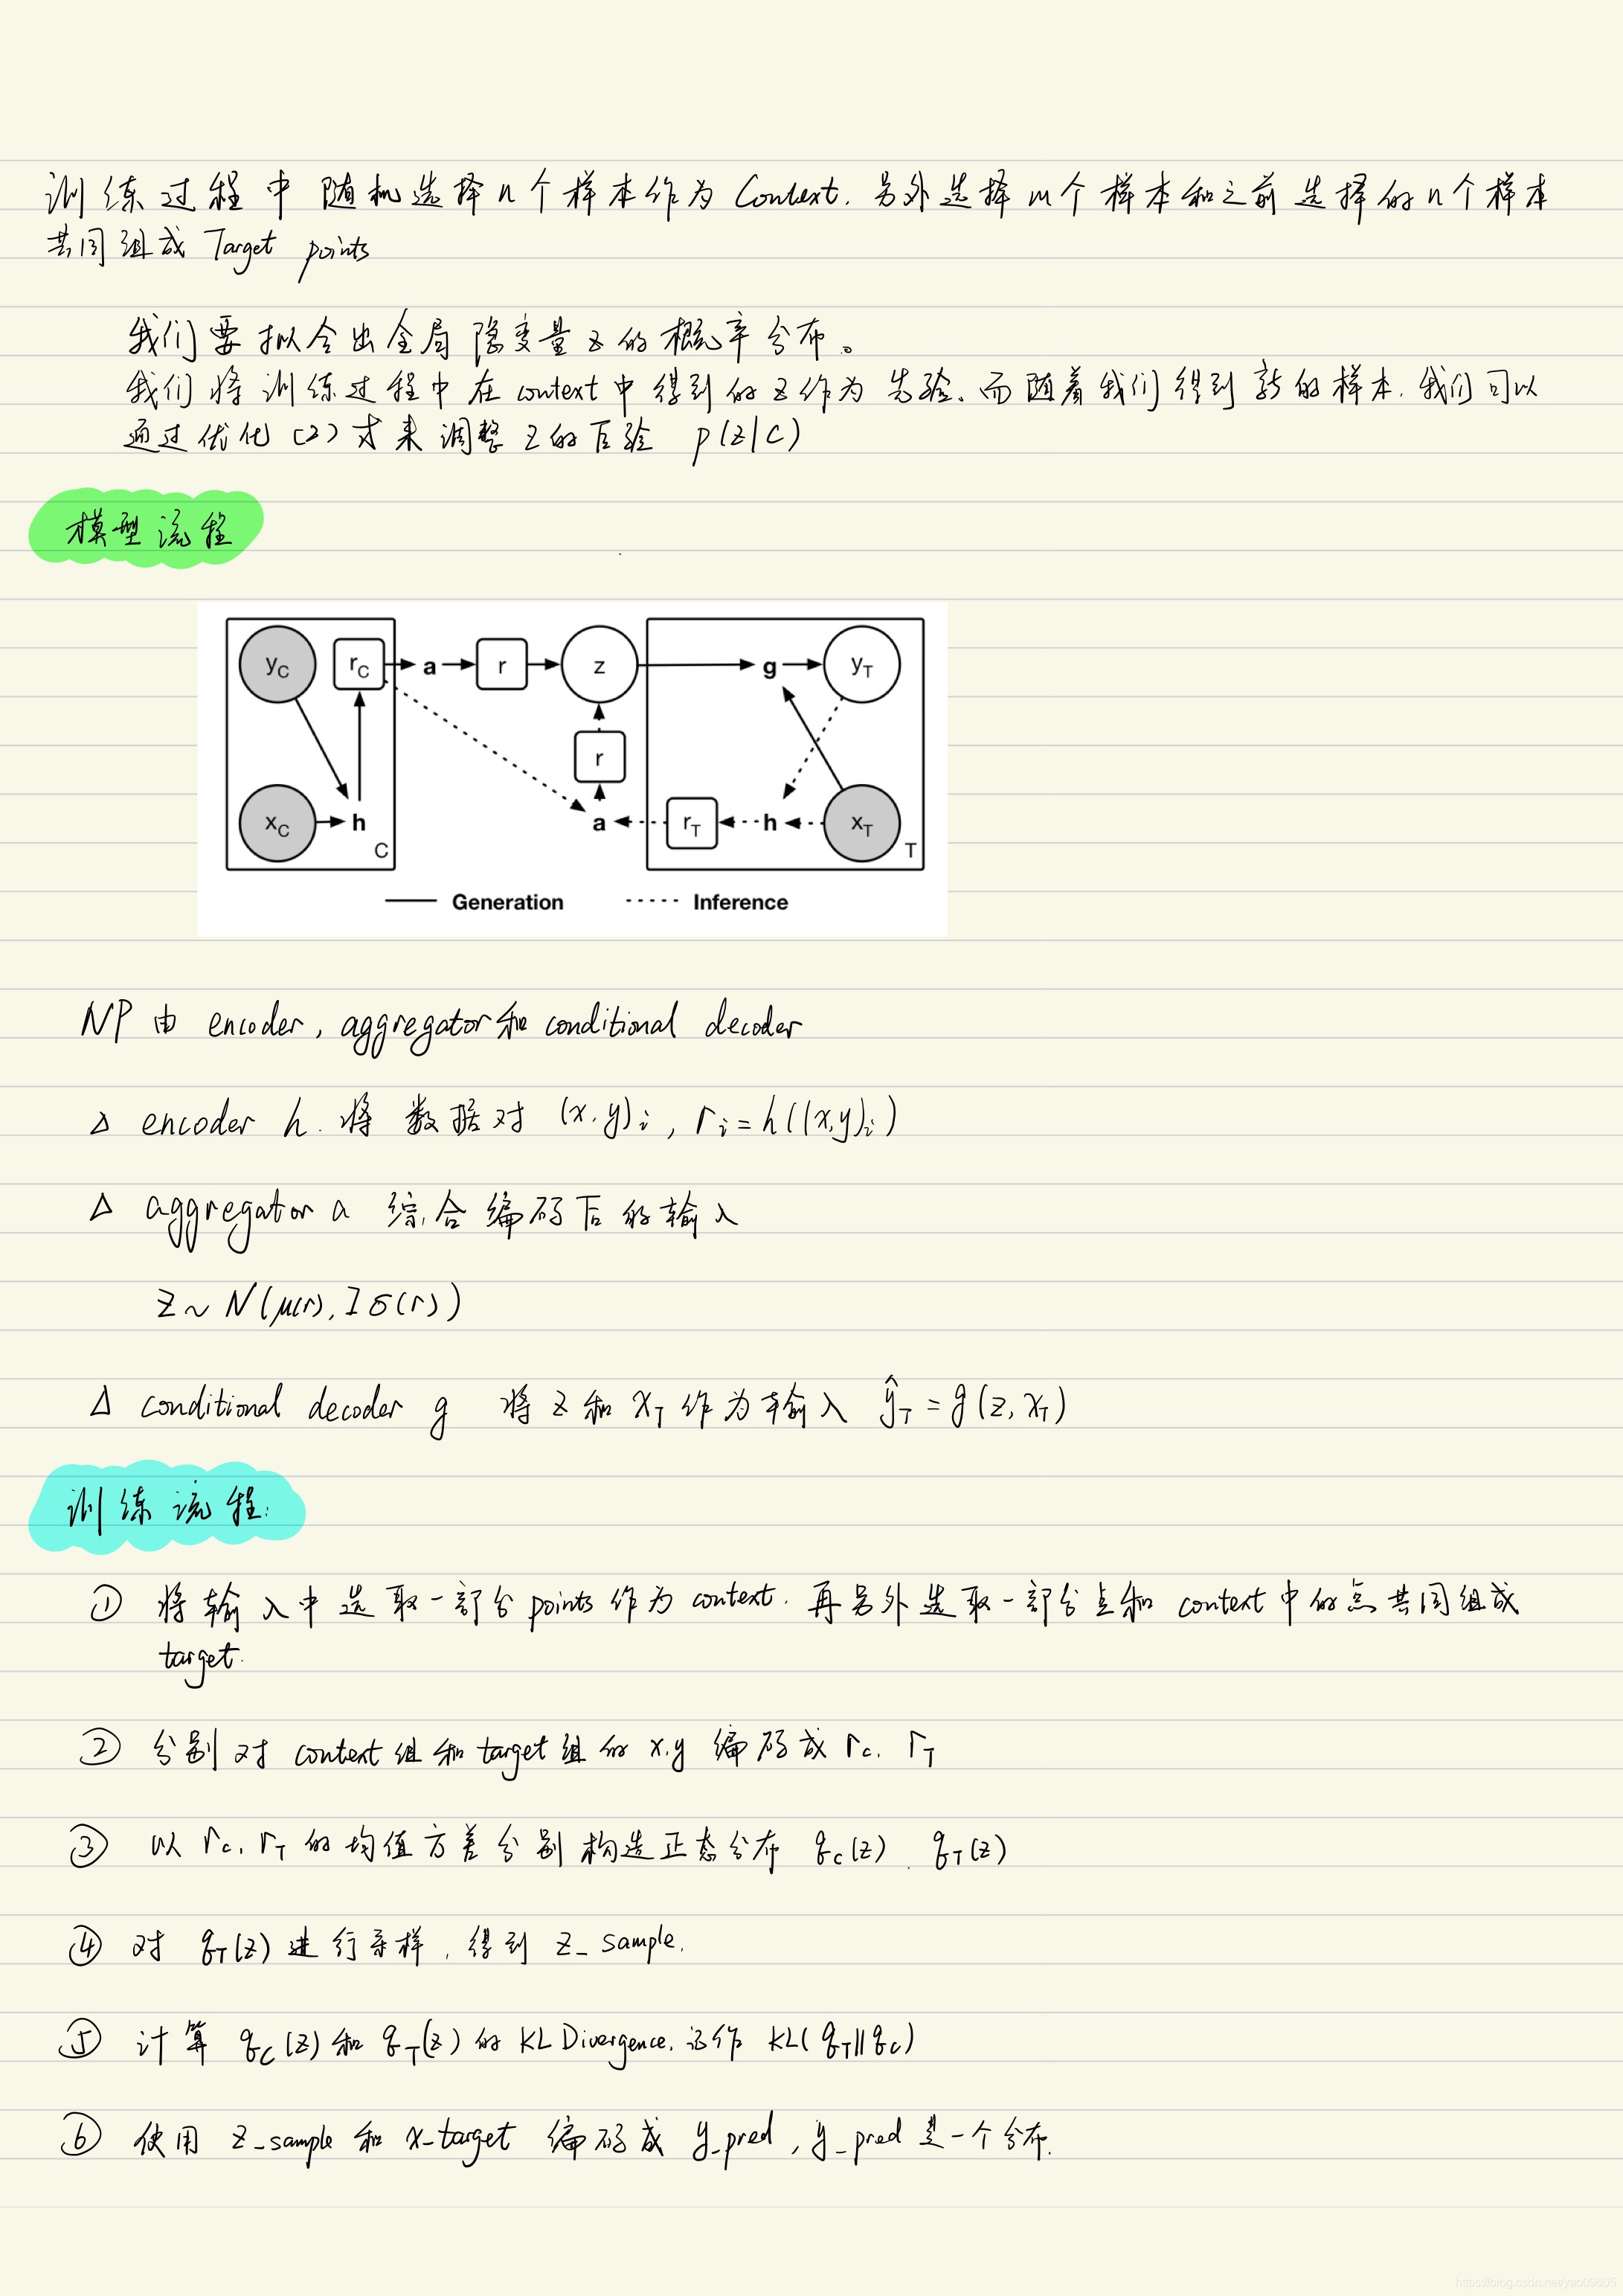 训练过程中随机选择n个样本作为Context.另外选择m个样本和之前选择的n个样本
共同组成Target points
我们要拟合出全局隐变量z的概率分布。
我们将训练过程中在context中得到的z作为先验、而随着我们得到新的样本.我们可以
通过优化(2)式来调整z的后验 p(z|C)
模型流程
y_C r_C a r z g y_T
r
x_C h C a r_T h x_T T
Generation Inference
NP由encoder, aggregator和conditional decoder
△ encoder h. 将数据对 (x.y)_i, r_i=h((x,y)_i)
△ aggregator a 综合编码后的输入
z~N(μ(r), Iσ(r))
△ conditional decoder g 将z和x_T作为输入 ŷ_T=g(z, x_T)
训练流程:
① 将输入中选取一部分points作为context.再另外选取一部分点和context中的点共同组成
target.
② 分别对context组和target组的x.y编码成r_c. r_T
③ 以r_c. r_T的均值方差分别构造正态分布 q_c(z). q_T(z)
④ 对q_T(z)进行采样,得到z_sample.
⑤ 计算q_C(z)和q_T(z)的KL Divergence.记作 KL(q_T||q_c)
⑥ 使用z_sample和x_target编码成y_pred, y_pred是一个分布.
https://blog.csdn.net/yao09605